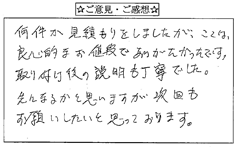 ☆ご意見・ご感想☆
何件か見積もりをしましたが、ここは、
良心的なお値段でありがたかったです。
取り付け後の説明も丁寧でした。
先になるかと思いますが次回も
お願いしたいと思っております。